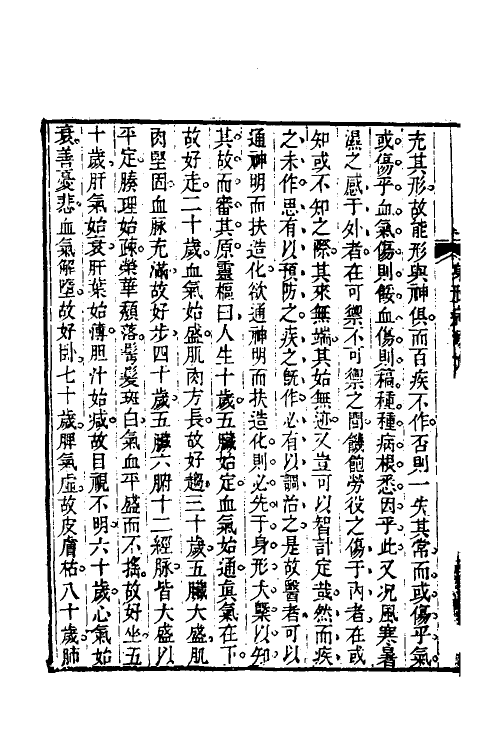 充其形故能形與神俱而百疾不作否則一失其常而或傷乎氣
或傷乎血氣傷則餒血傷則稿種種病根悉因乎此又况風寒暑
濕之感于外者在可禦不可禦之間饑飽勞役之傷于内者在或
知或不知之際其來無端其始無迹又豈可以智計定哉然而疾
之未作思有以預防之疾之旣作必有以調治之是故醫者可以
通神明而扶造化欲通神明而扶造化則必先于身形大槩以知
其故而審其原靈樞曰人生十歲五臟始定血氣始通眞氣在下
故好走二十歲血氣始盛肌肉方長故好趨三十歲五臟大盛肌
肉堅固血脉充滿故好步四十歲五臟六腑十二經脉皆大盛以
平定腠理始疎榮華頹落鬂髮斑白氣血平盛而不搖故好坐五
十歲肝氣始衰肝葉始薄胆汁始减故目視不明六十歲心氣始
衰善憂悲血氣解墮故好卧七十歲脾氣虛故皮膚枯八十歲肺